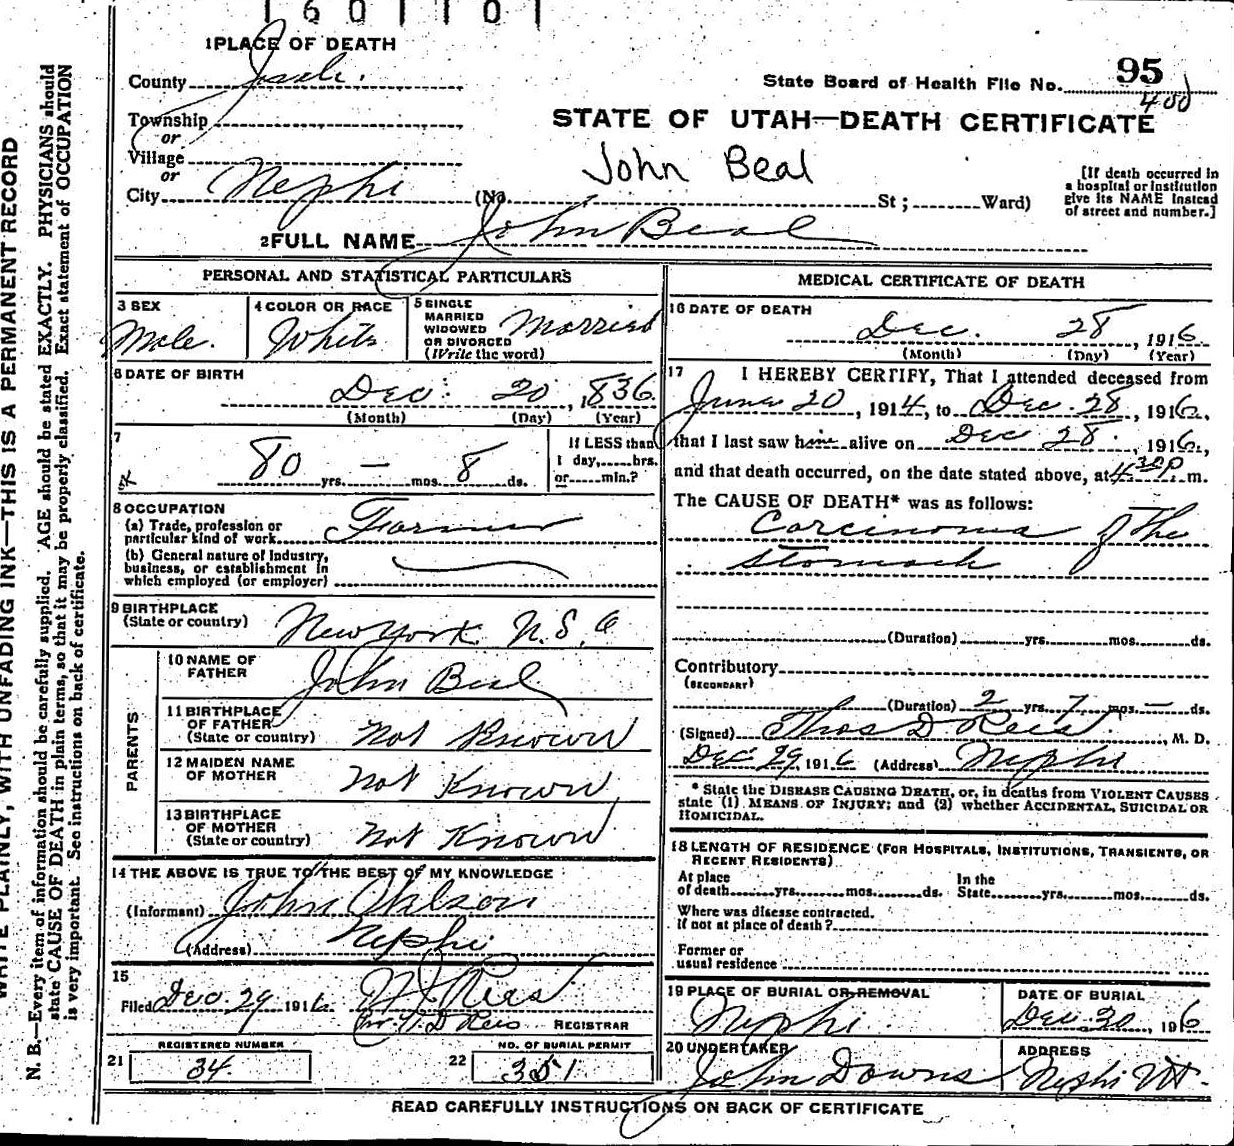 1601101
1 PLACE OF DEATH
County Juab.
State Board of Health File No. 95
400
Township
or
Village
or
City Nephi (No. St; Ward)
STATE OF UTAH—DEATH CERTIFICATE
John Beal
[If death occurred in
a hospital or institution
give its NAME instead
of street and number.]
2 FULL NAME John Beal
PERSONAL AND STATISTICAL PARTICULARS
3 SEX
Male.
4 COLOR OR RACE
White
5 SINGLE
MARRIED
WIDOWED
OR DIVORCED
(Write the word)
Married
6 DATE OF BIRTH
Dec. 20, 1836
(Month) (Day) (Year)
7
80 yrs. — mos. 8 ds.
If LESS than
1 day,......hrs.
or......min.?
8 OCCUPATION
(a) Trade, profession or
particular kind of work Farmer
(b) General nature of Industry,
business, or establishment in
which employed (or employer)
9 BIRTHPLACE
(State or country) New York
PARENTS
10 NAME OF
FATHER John Beal
11 BIRTHPLACE
OF FATHER
(State or country) Not Known
12 MAIDEN NAME
OF MOTHER Not Known
13 BIRTHPLACE
OF MOTHER
(State or country) Not Known
14 THE ABOVE IS TRUE TO THE BEST OF MY KNOWLEDGE
(Informant) John Ohlson
(Address) Nephi
15
Filed Dec. 29 1916 Rees
D Rees REGISTRAR
21 REGISTERED NUMBER
34
22 NO. OF BURIAL PERMIT
351
MEDICAL CERTIFICATE OF DEATH
16 DATE OF DEATH
Dec. 28, 1916
(Month) (Day) (Year)
17 I HEREBY CERTIFY, That I attended deceased from
June 20, 1914, to Dec. 28, 1916,
that I last saw him alive on Dec 28, 1916,
and that death occurred, on the date stated above, at 4 30 p m.
The CAUSE OF DEATH* was as follows:
Carcinoma of the
stomach
(Duration) yrs. mos. ds.
Contributory
(SECONDARY)
(Duration) 2 yrs. 7 mos. — ds.
(Signed) Thos D Rees, M. D.
Dec 29, 1916 (Address) Nephi
* State the DISEASE CAUSING DEATH, or, in deaths from VIOLENT CAUSES
state (1) MEANS OF INJURY; and (2) whether ACCIDENTAL, SUICIDAL OR
HOMICIDAL.
18 LENGTH OF RESIDENCE (FOR HOSPITALS, INSTITUTIONS, TRANSIENTS, OR
RECENT RESIDENTS)
At place
of death yrs. mos. ds.
In the
State yrs. mos. ds.
Where was disease contracted.
if not at place of death?
Former or
usual residence
19 PLACE OF BURIAL OR REMOVAL
Nephi
DATE OF BURIAL
Dec. 30, 1916
20 UNDERTAKER
John Downs
ADDRESS
Nephi Ut.
READ CAREFULLY INSTRUCTIONS ON BACK OF CERTIFICATE
WRITE PLAINLY, WITH UNFADING INK—THIS IS A PERMANENT RECORD
N. B.—Every item of information should be carefully supplied. AGE should be stated EXACTLY. PHYSICIANS should
state CAUSE OF DEATH in plain terms, so that it may be properly classified. Exact statement of OCCUPATION
is very important. See instructions on back of certificate.